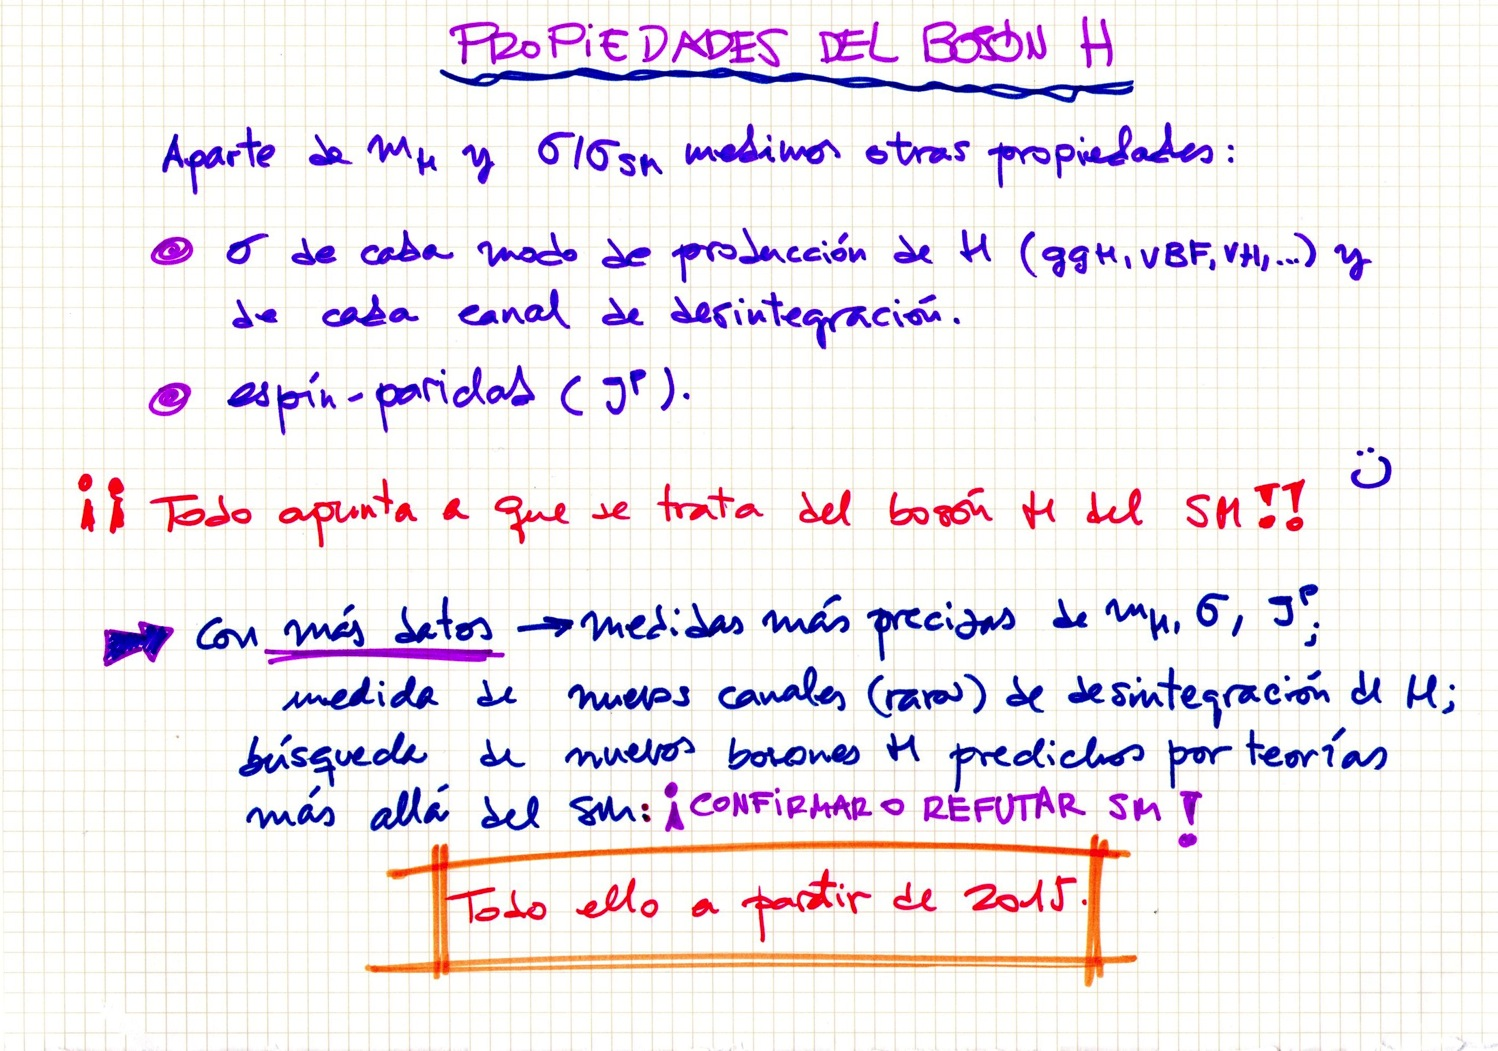 PROPIEDADES DEL BOSÓN H
Aparte de m_H y σ/σ_SM medimos otras propiedades:
σ de cada modo de producción de H (ggH, VBF, VH, ...) y
de cada canal de desintegración.
espín-paridad (J^P).
¡¡ Todo apunta a que se trata del bosón H del SM !!
Con más datos → medidas más precisas de m_H, σ, J^P;
medida de nuevos canales (raros) de desintegración de H;
búsqueda de nuevos bosones H predichos por teorías
más allá del SM: ¡CONFIRMAR O REFUTAR SM!
Todo ello a partir de 2015.